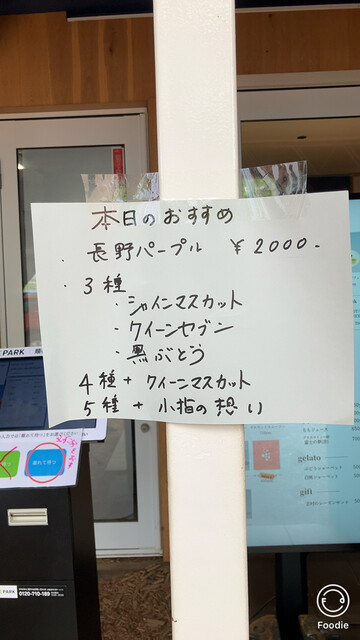 本日のおすすめ
・長野パープル ￥2000-
・3種
・シャインマスカット
・クイーンセブン
・黒ぶどう
4種 + クイーンマスカット
5種 + 小指の想い
PARK
離れて待つ
PARK
0120-710-189
gelato
gift
Foodie